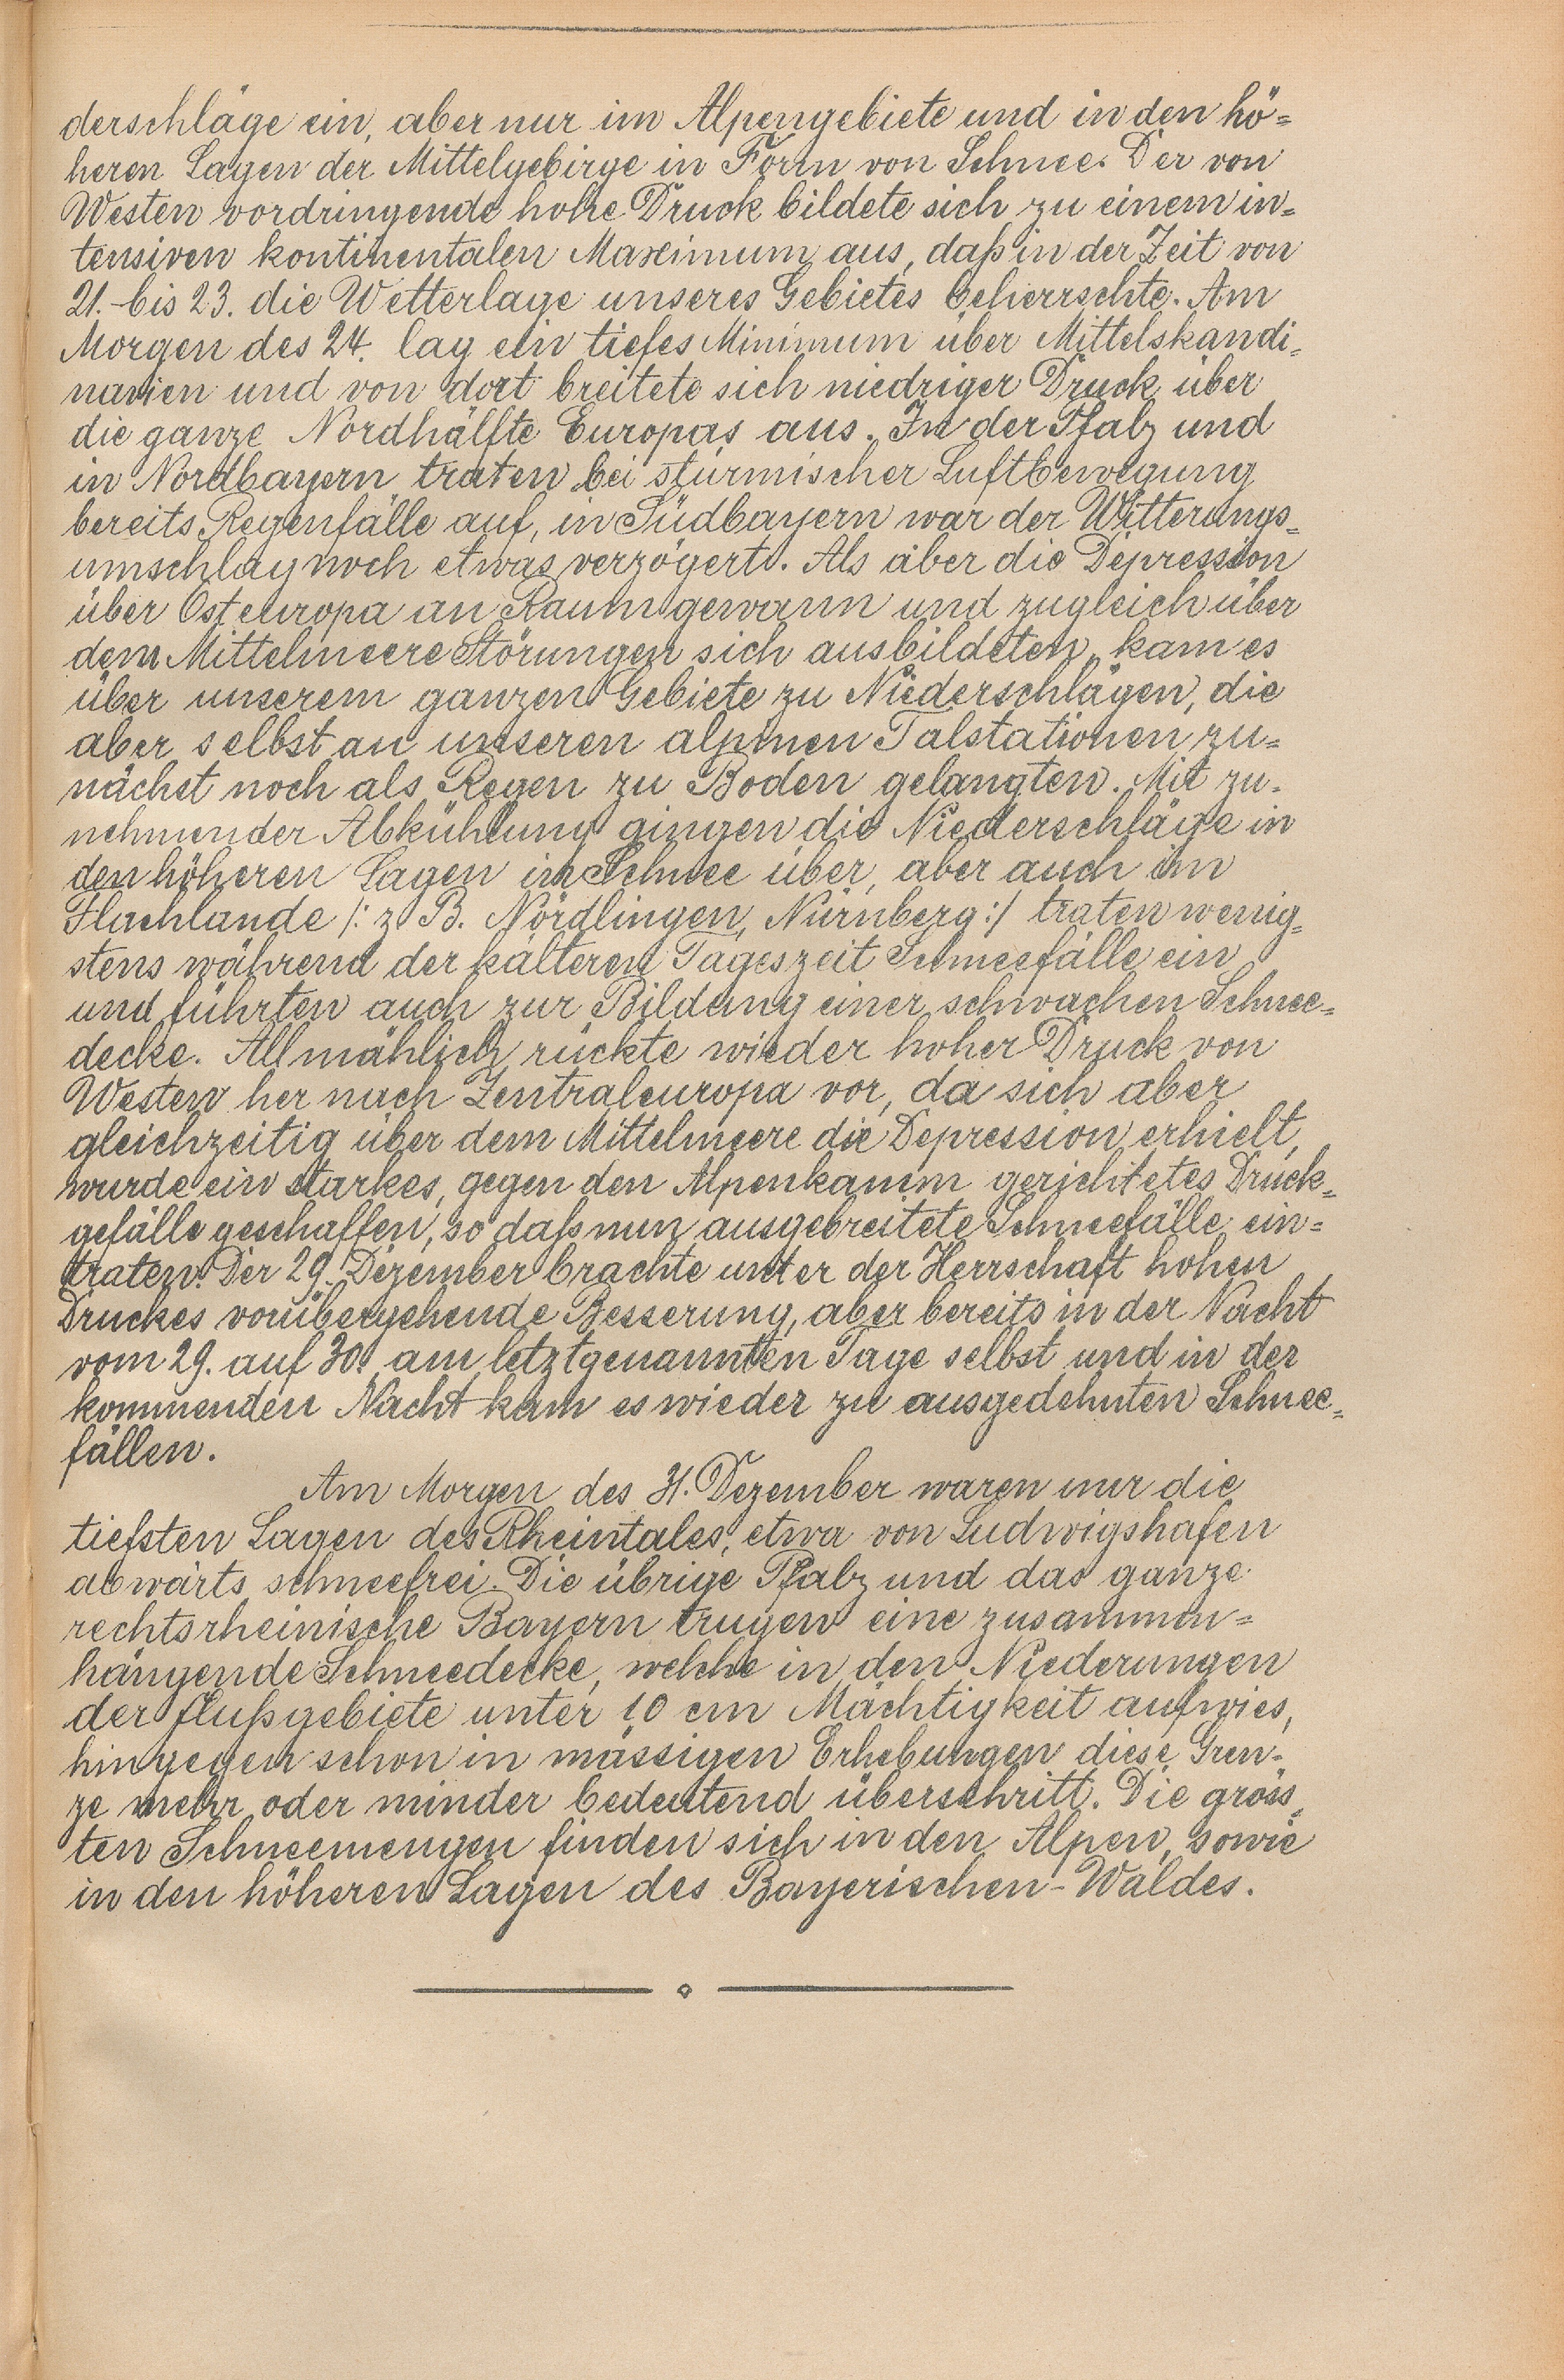 derschläge ein, aber nur im Alpengebiete und in den hö=
heren Lagen der Mittelgebirge in Form von Schnee. Der von
Westen vordringende hohe Druck bildete sich zu einem in=
tensiven kontinentalen Maximum aus, daß in der Zeit von
21.-bis 23. die Wetterlage unseres Gebietes beherrschte. Am
Morgen des 24. lag ein tiefes Minimum über Mittelskandi=
navien und von dort breitete sich niedriger Druck über
die ganze Nordhälfte Europas aus. In der Pfalz und
in Nordbayern traten bei stürmischer Luftbewegung
bereits Regenfälle auf, in Südbayern war der Witterungs=
umschlag noch etwas verzögert. Als aber die Depression
über Osteuropa an Raum gewann und zugleich über
dem Mittelmeere Störungen sich ausbildeten, kam es
über unserem ganzen Gebiete zu Niederschlägen, die
aber selbst an unseren alpinen Talstationen zu=
nächst noch als Regen zu Boden gelangten. Mit zu=
nehmender Abkühlung gingen die Niederschläge in
den höheren Lagen in Schnee über, aber auch im
Flachlande /: z B. Nördlingen, Nürnberg :/ traten wenig=
stens während der kälteren Tageszeit Schneefälle ein
und führten auch zur Bildung einer schwachen Schnee=
decke. Allmählich rückte wieder hoher Druck von
Westen her nach Zentraleuropa vor, da sich aber
gleichzeitig über dem Mittelmeere die Depression erhielt,
wurde ein starkes, gegen den Alpenkamm gerichtetes Druck=
gefälle geschaffen, so daß nun ausgebreitete Schneefälle ein=
traten. Der 29. Dezember brachte unter der Herrschaft hohen
Druckes vorübergehende Besserung, aber bereits in der Nacht
vom 29. auf 30., am letztgenannten Tage selbst und in der
kommenden Nacht kam es wieder zu ausgedehnten Schnee=
fällen.
Am Morgen des 31. Dezember waren nur die
tiefsten Lagen des Rheintales, etwa von Ludwigshafen
abwärts schneefrei. Die übrige Pfalz und das ganze
rechtsrheinische Bayern trugen eine zusammen=
hängende Schneedecke, welche in den Niederungen
der Flußgebiete unter 10 cm Mächtigkeit aufwies,
hingegen schon in mässigen Erhebungen diese Gren=
ze mehr oder minder bedeutend überschritt. Die gröss=
ten Schneemengen finden sich in den Alpen, sowie
in den höheren Lagen des Bayerischen-Waldes.